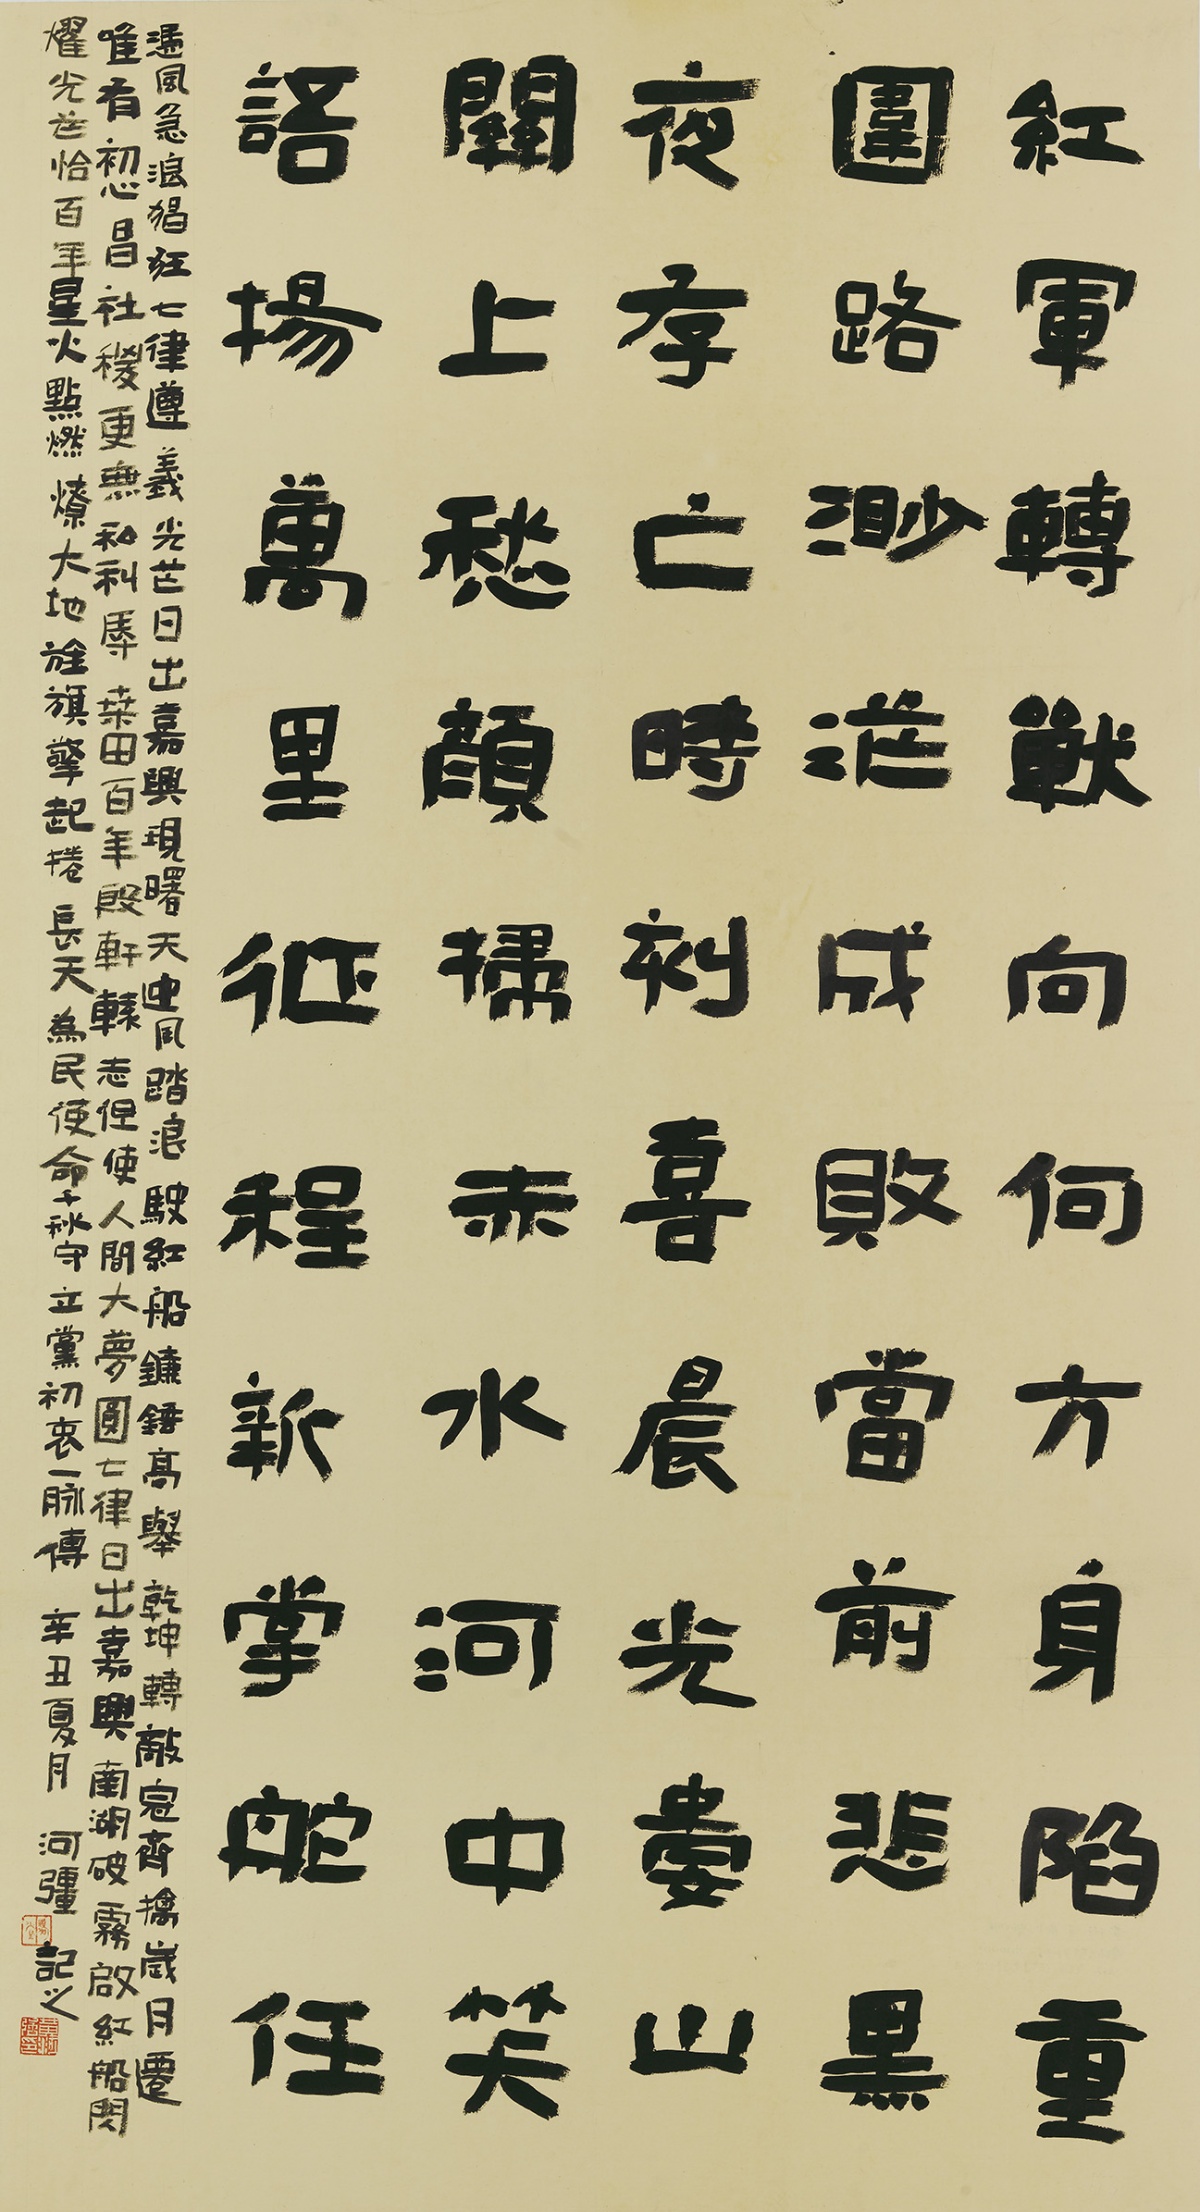 紅軍轉戰向何方身陷重
圍路渺茫成敗當前悲黑
夜存亡時刻喜晨光婁山
關上愁顏掃赤水河中笑
語揚萬里征程新掌舵任
憑風急浪猖狂七律遵義光芒日出嘉興現曙天迎風踏浪駛紅船鐮錘高舉乾坤轉敵寇齊擒歲月遷
唯有初心昌社稷更無私利辱桑田百年殷軒轅志但使人間大夢圓七律日出嘉興南湖破霧啟紅船閃
耀光芒恰百年星火點燃燎大地旌旗擎起捲長天為民使命千秋守立黨初衷一脉傳 辛丑夏月 河疆 記之